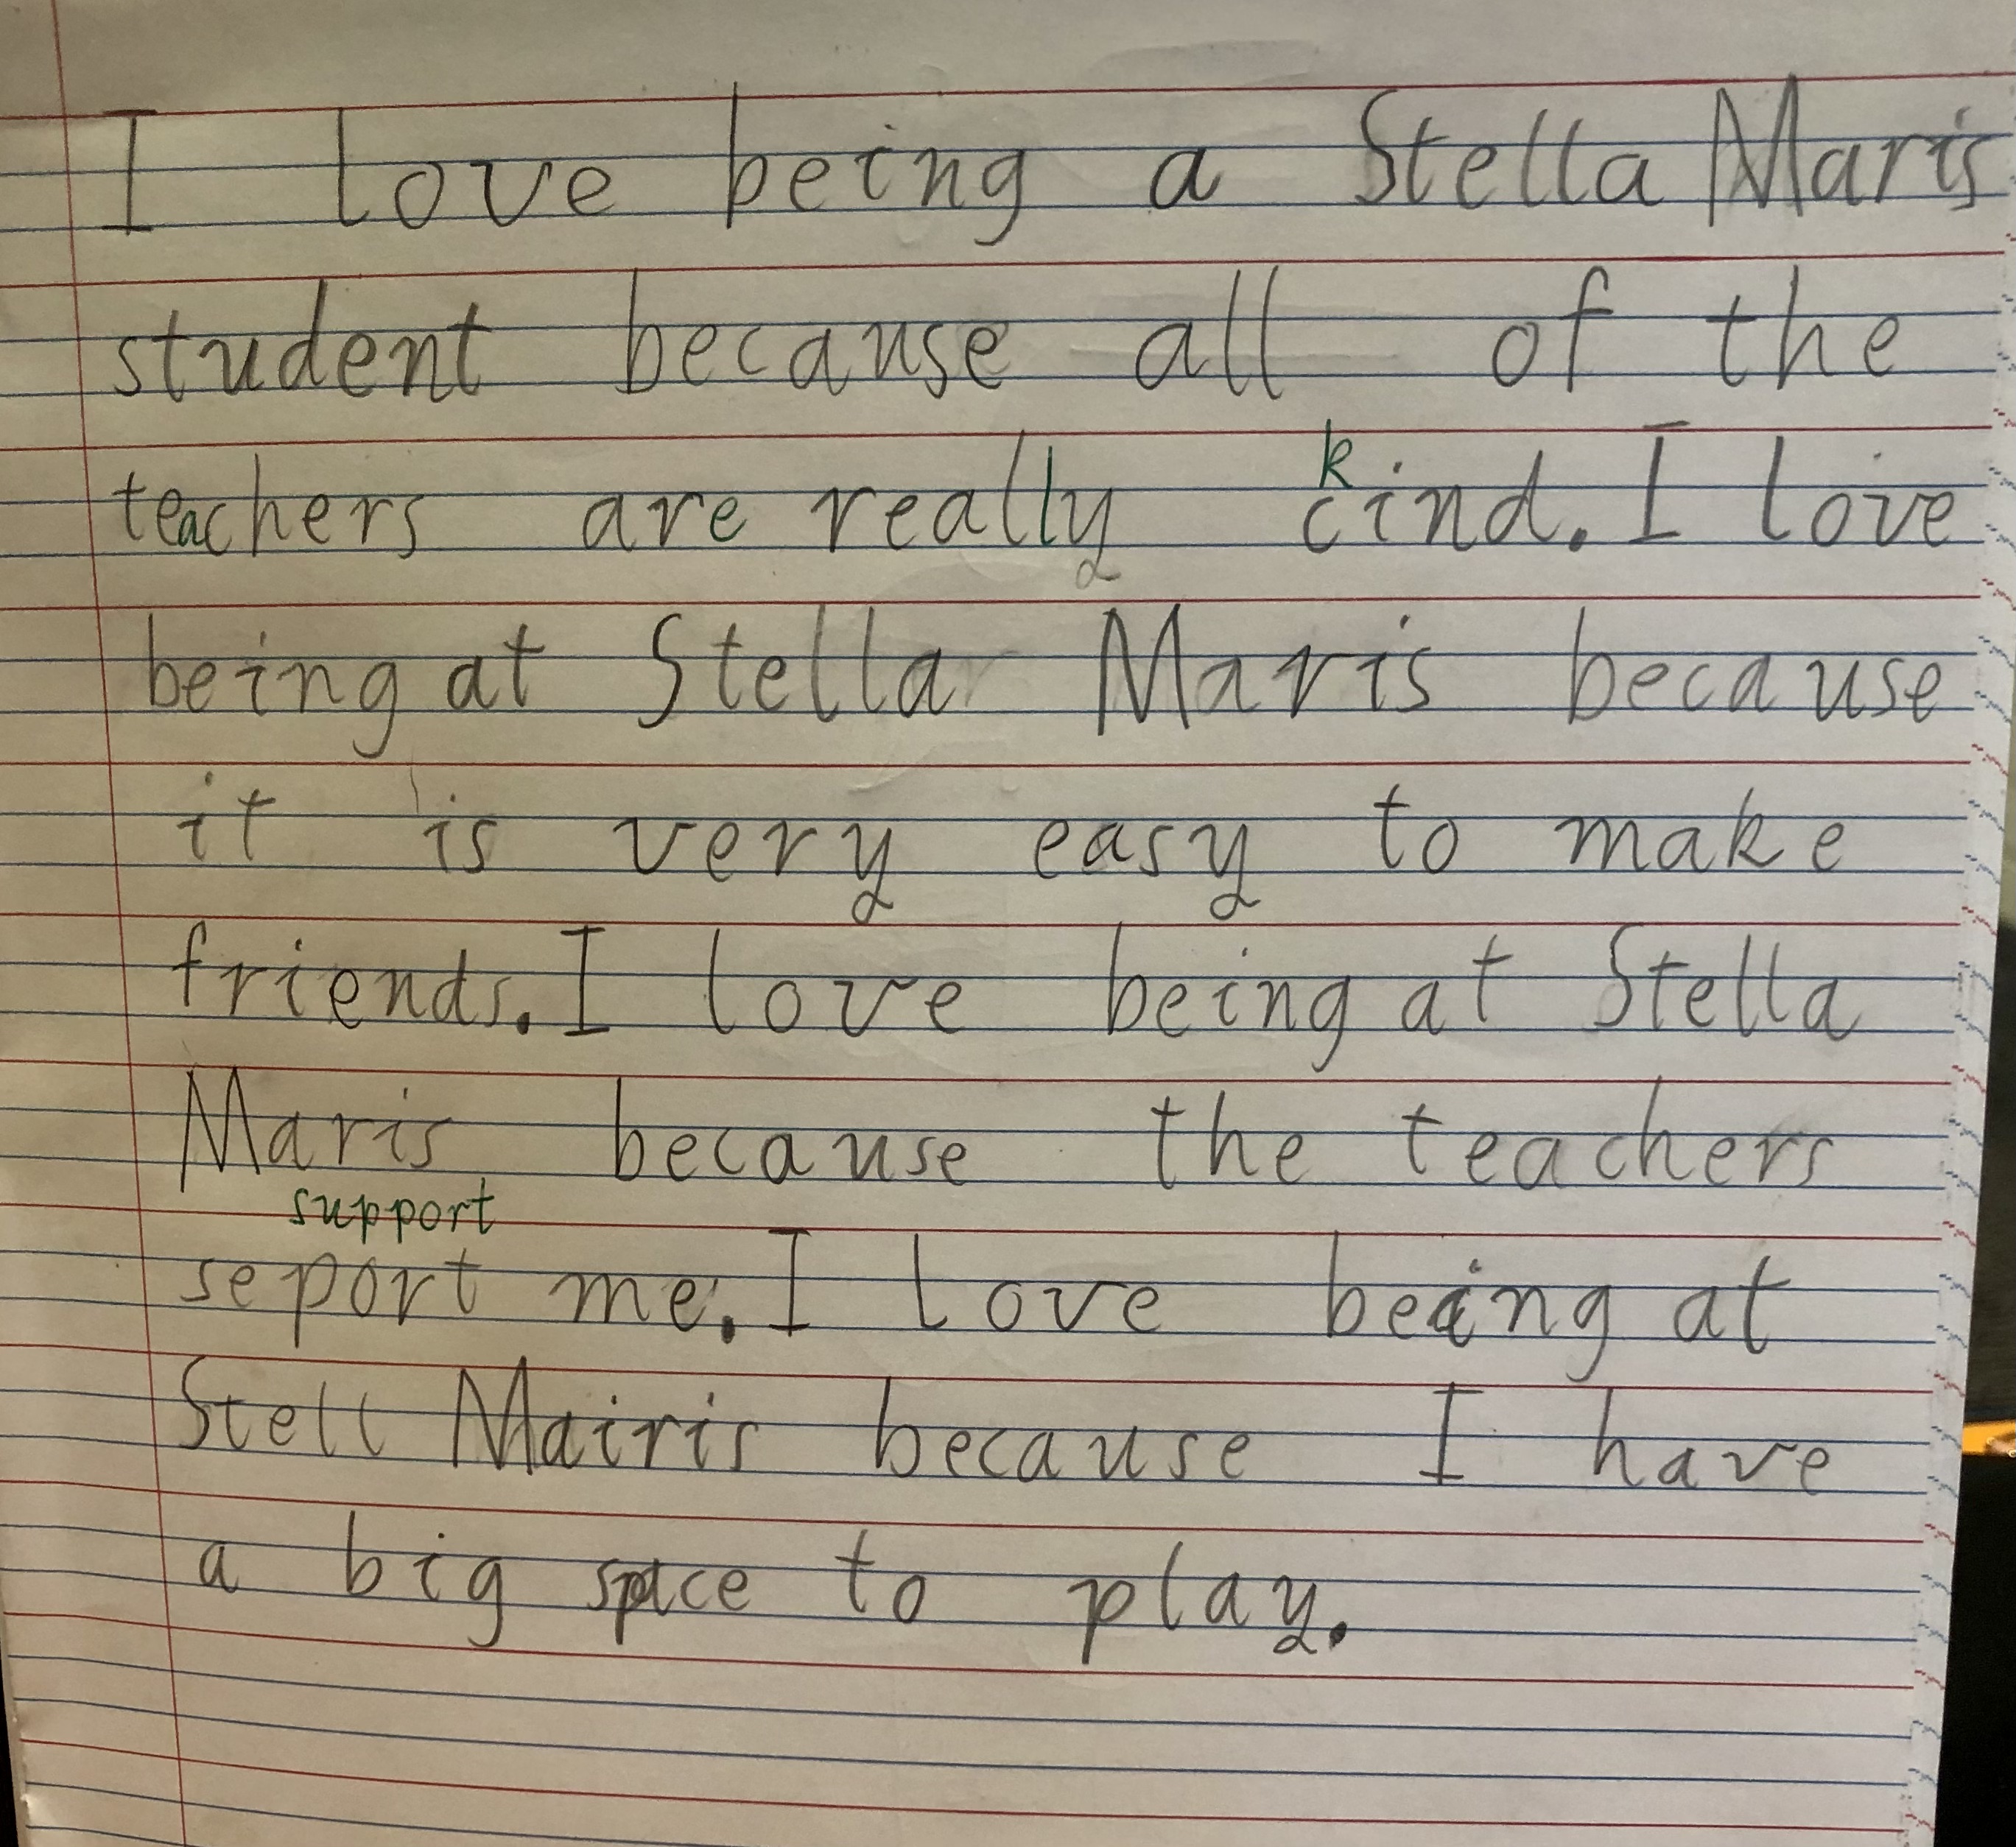 I love being a Stella Maris
student because all of the
k
teachers are really cind. I love
being at Stella Maris because
it is very easy to make
friends. I love being at Stella
Maris because the teachers
support
seport me. I love being at
Stell Mairis because I have
a big space to play.